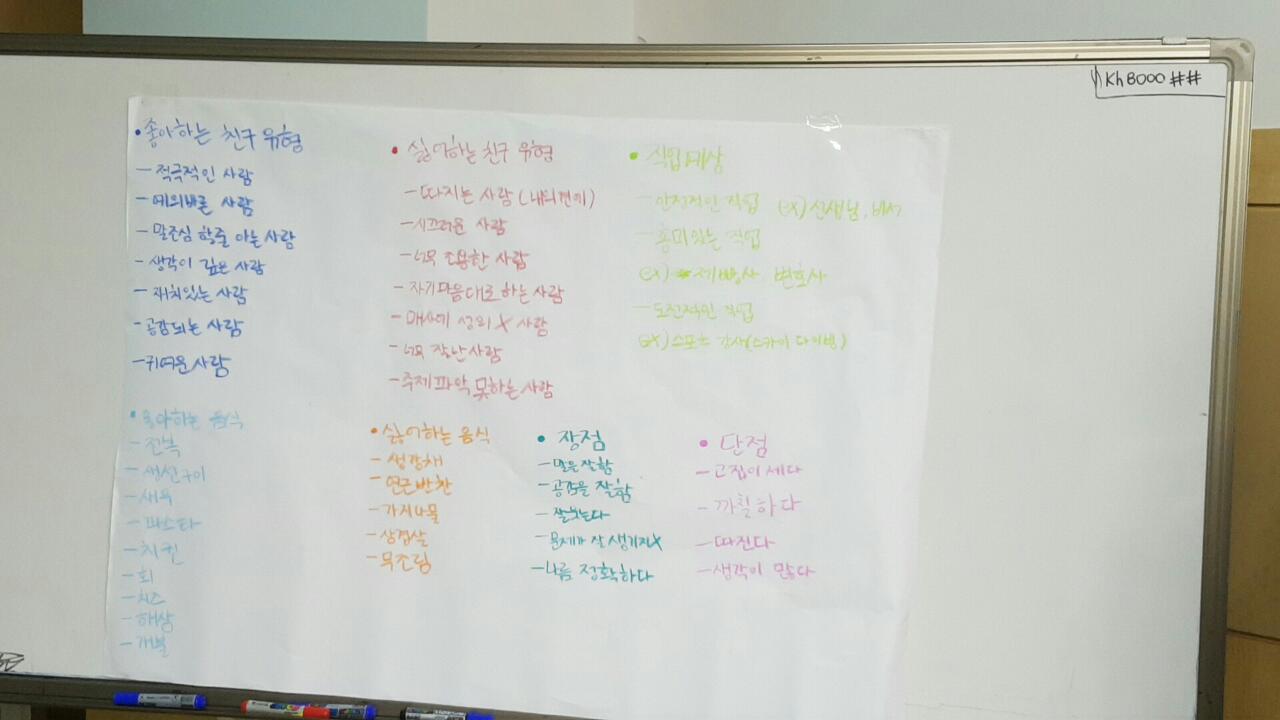 Kh8000##
• 좋아하는 친구 유형
- 적극적인 사람
- 예의바른 사람
- 말조심 할줄 아는 사람
- 생각이 깊은 사람
- 재치있는 사람
- 공감되는 사람
- 귀여운 사람
• 싫어하는 친구 유형
- 따지는 사람 (내의견에)
- 시끄러운 사람
- 너무 조용한 사람
- 자기마음대로 하는 사람
- 매사에 성의 X 사람
- 너무 잘난 사람
- 주제파악 못하는 사람
• 직업
- 안정적인 직업 ex) 선생님, 비서
- 흥미있는 직업
ex) 제빵사, 변호사
- 도전적인 직업
ex) 스포츠 강사(스카이 다이빙)
• 좋아하는 음식
- 전복
- 생선구이
- 새우
- 파스타
- 치킨
- 회
- 치즈
- 해삼
- 개불
• 싫어하는 음식
- 생강채
- 연근반찬
- 가지나물
- 삼겹살
- 무조림
• 장점
- 말을 잘함
- 공감을 잘함
- 잘웃는다
- 문제가 잘 생기지X
- 나름 정확하다
• 단점
- 고집이 세다
- 까칠하다
- 따진다
- 생각이 많다